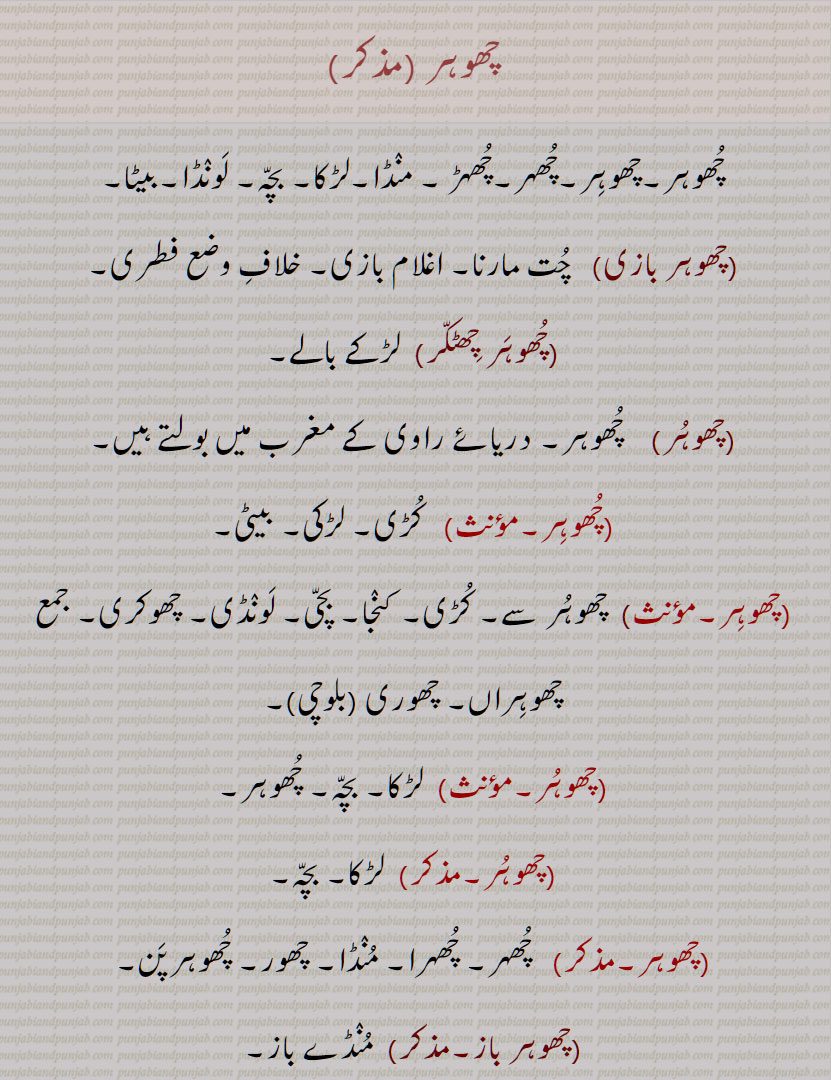 چھوہر (مذکر)
چُھوہر ۔چھوہِر ۔چُھہر ۔چُھہڑ ۔ منْڈا ۔لڑکا۔ بچّہ ۔ لَونْڈا ۔بیٹا۔
(چھوہر بازی) چُت مارنا۔ اغلام بازی۔ خلافِ وضع فطری۔
(چُھوہَر چِھٹکّر) لڑکے بالے۔
(چھوہُر) چُھوہر ۔ دریائے راوی کے مغرب میں بولتے ہیں۔
(چُھوہِر ۔مؤنث) کُڑی۔ لڑکی۔ بیٹی۔
(چھوہِر ۔مؤنث) چھوہُر سے۔ کُڑی۔ کنجْا۔ بچّی۔ لَونْڈی۔ چھوکری۔ جمع
چھوہِراں۔ چھوری (بلوچی)۔
(چھوہُر ۔مؤنث) لڑکا۔ بچّہ ۔ چُھوہر ۔
(چھوہُر ۔مذکر) لڑکا۔ بچّہ ۔
(چھوہر ۔مذکر) چُھہر ۔ چُھہرا۔ مُنْڈا۔ چھور۔ چُھوہر پَن۔
(چھوہر باز۔مذکر) مُنْڈے باز۔